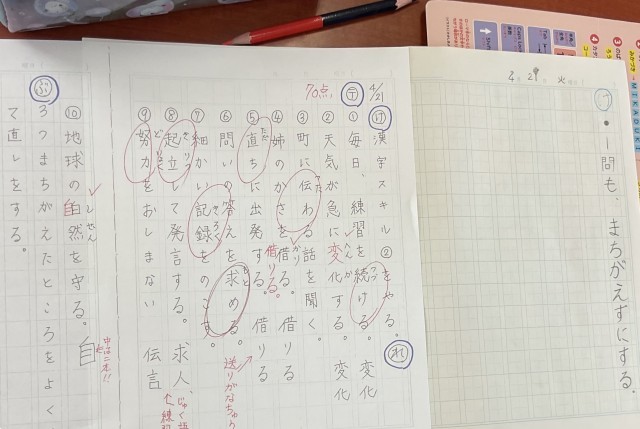 4/21 火
め • 一問も、まちがえずにする。
4/21
テ
70点
け 漢字スキル②をやる。 れ
① 毎日、練習を続ける。 変化
② 天気が急に変化する。 変化
③ 町に伝わる話を聞く。
④ 姉のかさを借りる。 借りる
⑤ 直ちに出発する。 借りる
⑥ 問いの答えを求める。
⑦ 細かい記録をのこす。
⑧ 起立して発言する。 求人
⑨ 努力をおしまない 伝言
⑩ 地球の自然を守る。 自
中は二本!!
ふ
3つまちがえたところをよく
て直しをする。
MIKADUKI